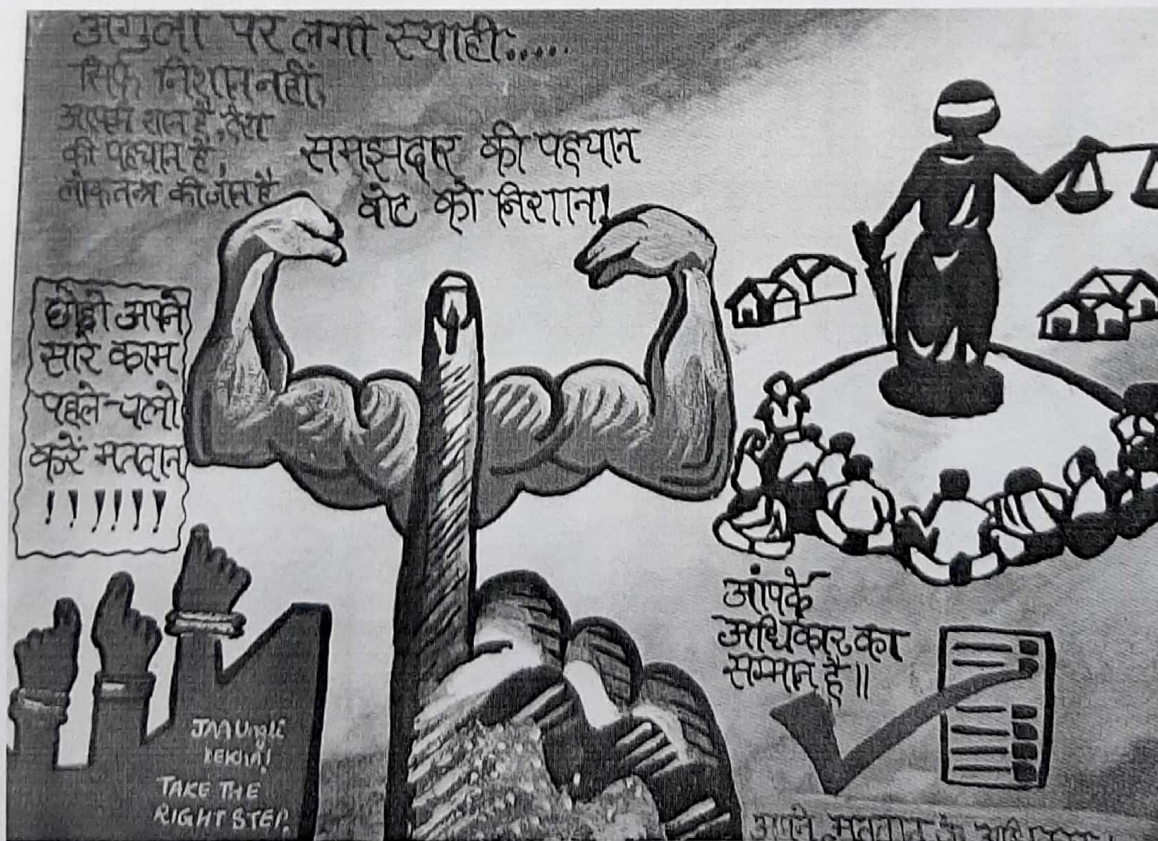 अंगुली पर लगी स्याही.....
सिर्फ निशान नहीं,
आपकी शान है, देश
की पहचान है,
लोकतंत्र की जान है
समझदार की पहचान
वोट को निशान!
छोड़ो अपने
सारे काम
पहले चलो
करें मतदान
!!!!!!
आपके
अधिकार का
सम्मान है॥
TAKE THE
RIGHT STEP.
अपने मतदान के